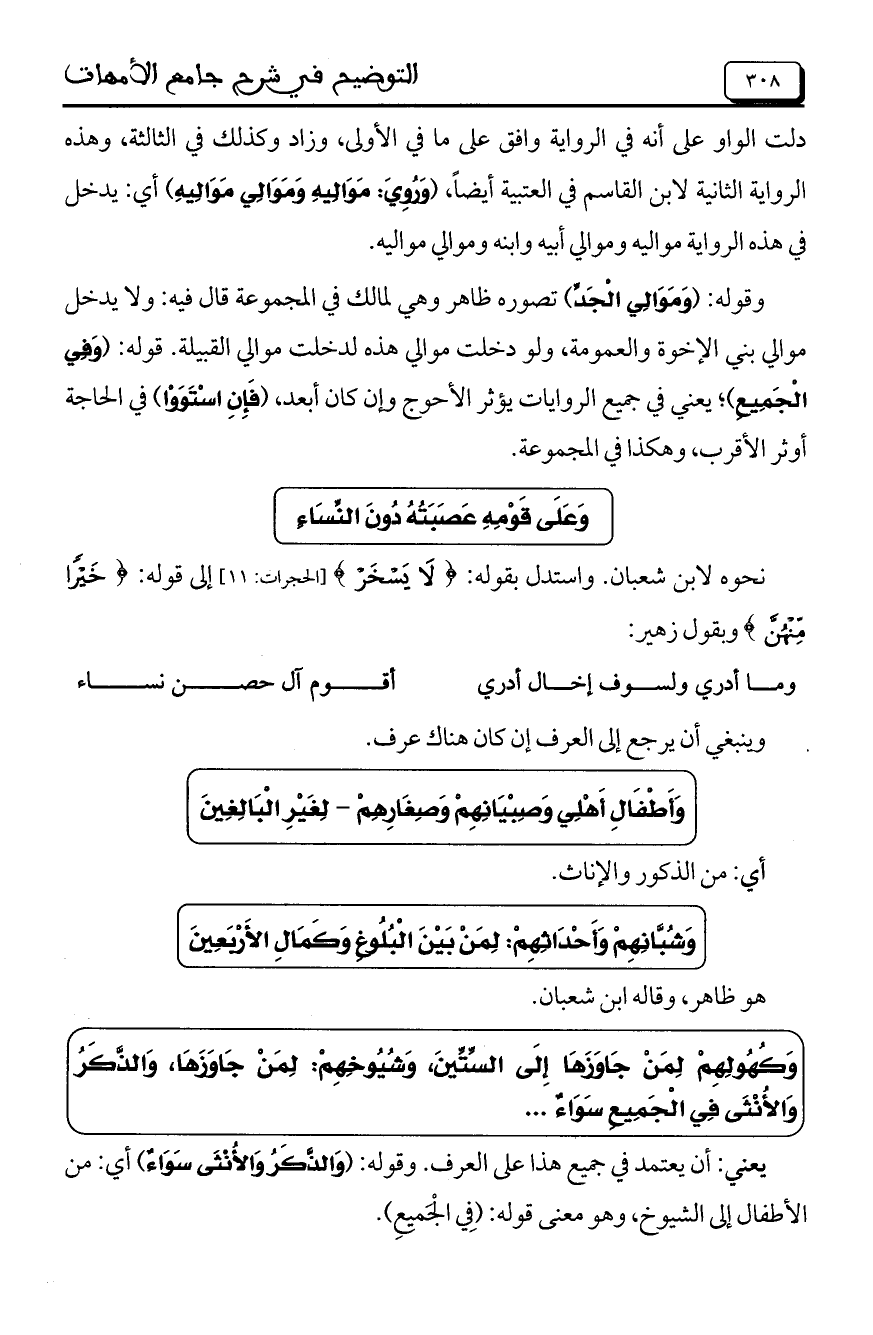 ٣٠٨
التوضيح في شرح جامع الأمهات
دلت الواو على أنه في الرواية وافق على ما في الأولى، وزاد وكذلك في الثالثة، وهذه
الرواية الثانية لابن القاسم في العتبية أيضاً، (وَرُوِيَ: مَوَالِيهِ وَمَوَالِي مَوَالِيهِ) أي: يدخل
في هذه الرواية مواليه وموالي أبيه وابنه وموالي مواليه.
وقوله: (وَمَوَالِي الْجَدِّ) تصوره ظاهر وهي لمالك في المجموعة قال فيه: ولا يدخل
موالي بني الإخوة والعمومة، ولو دخلت موالي هذه لدخلت موالي القبيلة. قوله: (وَفِي
الْجَمِيعِ)؛ يعني في جميع الروايات يؤثر الأحوج وإن كان أبعد، (فَإِنِ اسْتَوَوْا) في الحاجة
أوثر الأقرب، وهكذا في المجموعة.
وَعَلَى قَوْمِهِ عَصَبَتُهُ دُونَ النِّسَاءِ
نحوه لابن شعبان. واستدل بقوله: ﴿ لَا يَسْخَرْ ﴾ [الحجرات: ١١] إلى قوله: ﴿ خَيْرًا
مِّنْهُنَّ ﴾ وبقول زهير:
ومـا أدري ولسـوف إخـال أدري أقـوم آل حصـن نسـاء
وينبغي أن يرجع إلى العرف إن كان هناك عرف.
وَأَطْفَالِ أَهْلِي وَصِبْيَانِهِمْ وَصِغَارِهِمْ – لِغَيْرِ الْبَالِغِينَ
أي: من الذكور والإناث.
وَشُبَّانِهِمْ وَأَحْدَاثِهِمْ: لِمَنْ بَيْنَ الْبُلُوغِ وَكَمَالِ الأَرْبَعِينَ
هو ظاهر، وقاله ابن شعبان.
وَكُهُولِهِمْ لِمَنْ جَاوَزَهَا إِلَى السِّتِّينَ، وَشُيُوخِهِمْ: لِمَنْ جَاوَزَهَا، وَالذَّكَرُ
وَالأُنْثَى فِي الْجَمِيعِ سَوَاءٌ ...
يعني: أن يعتمد في جميع هذا على العرف. وقوله: (وَالذَّكَرُ وَالأُنْثَى سَوَاءٌ) أي: من
الأطفال إلى الشيوخ، وهو معنى قوله: (فِي الْجَمِيعِ).